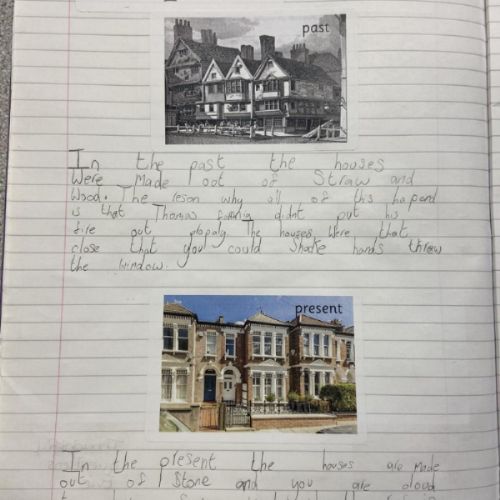 past
In the past the houses
were made oot of Straw and
Wood. The reson why all of this hapend
is that Thomas didnt put his
fire out propaly. The houses were that
close that you could Shake hands threw
the window.
present
In the present the houses are made
out of Stone and you are aloud